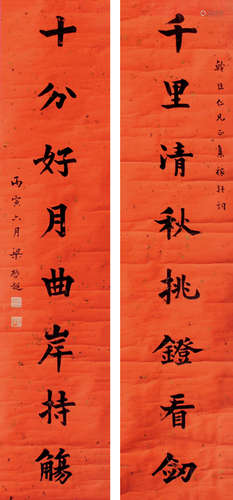 千里清秋挑鐙看劒
仁兄正集稼軒詞
十分好月曲岸持觴
丙寅六月梁啟超